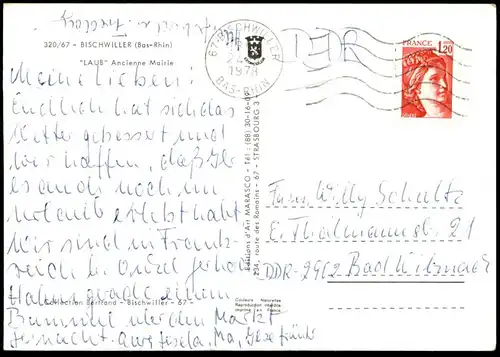 320/67 - BISCHWILLER (Bas-Rhin)
"LAUB" Ancienne Mairie
67-BISCHWILLER
1978
BAS-RHIN
DDR
FRANCE
1,20
Meine Lieben!
Endlich hat sich das
Wetter gebessert und
wir hoffen, daß Ihr
es auch noch im
Urlaub erlebt habt
Wir sind in Frank-
reich b. Onkel
Haben gerade einen
Bummel über den Markt
gemacht.
Collection Bertrand - Bischwiller - 67 -
Editions d'Art MARASCO - Tél : (88) 30-16-09
234, route des Romains - 67 - STRASBOURG 3
Couleurs Naturelles
Reproduction interdite
Imprimé en France
Fam. Willy Schultz
E. Thälmannstr. 21
DDR-2902 Bad Wilsnack